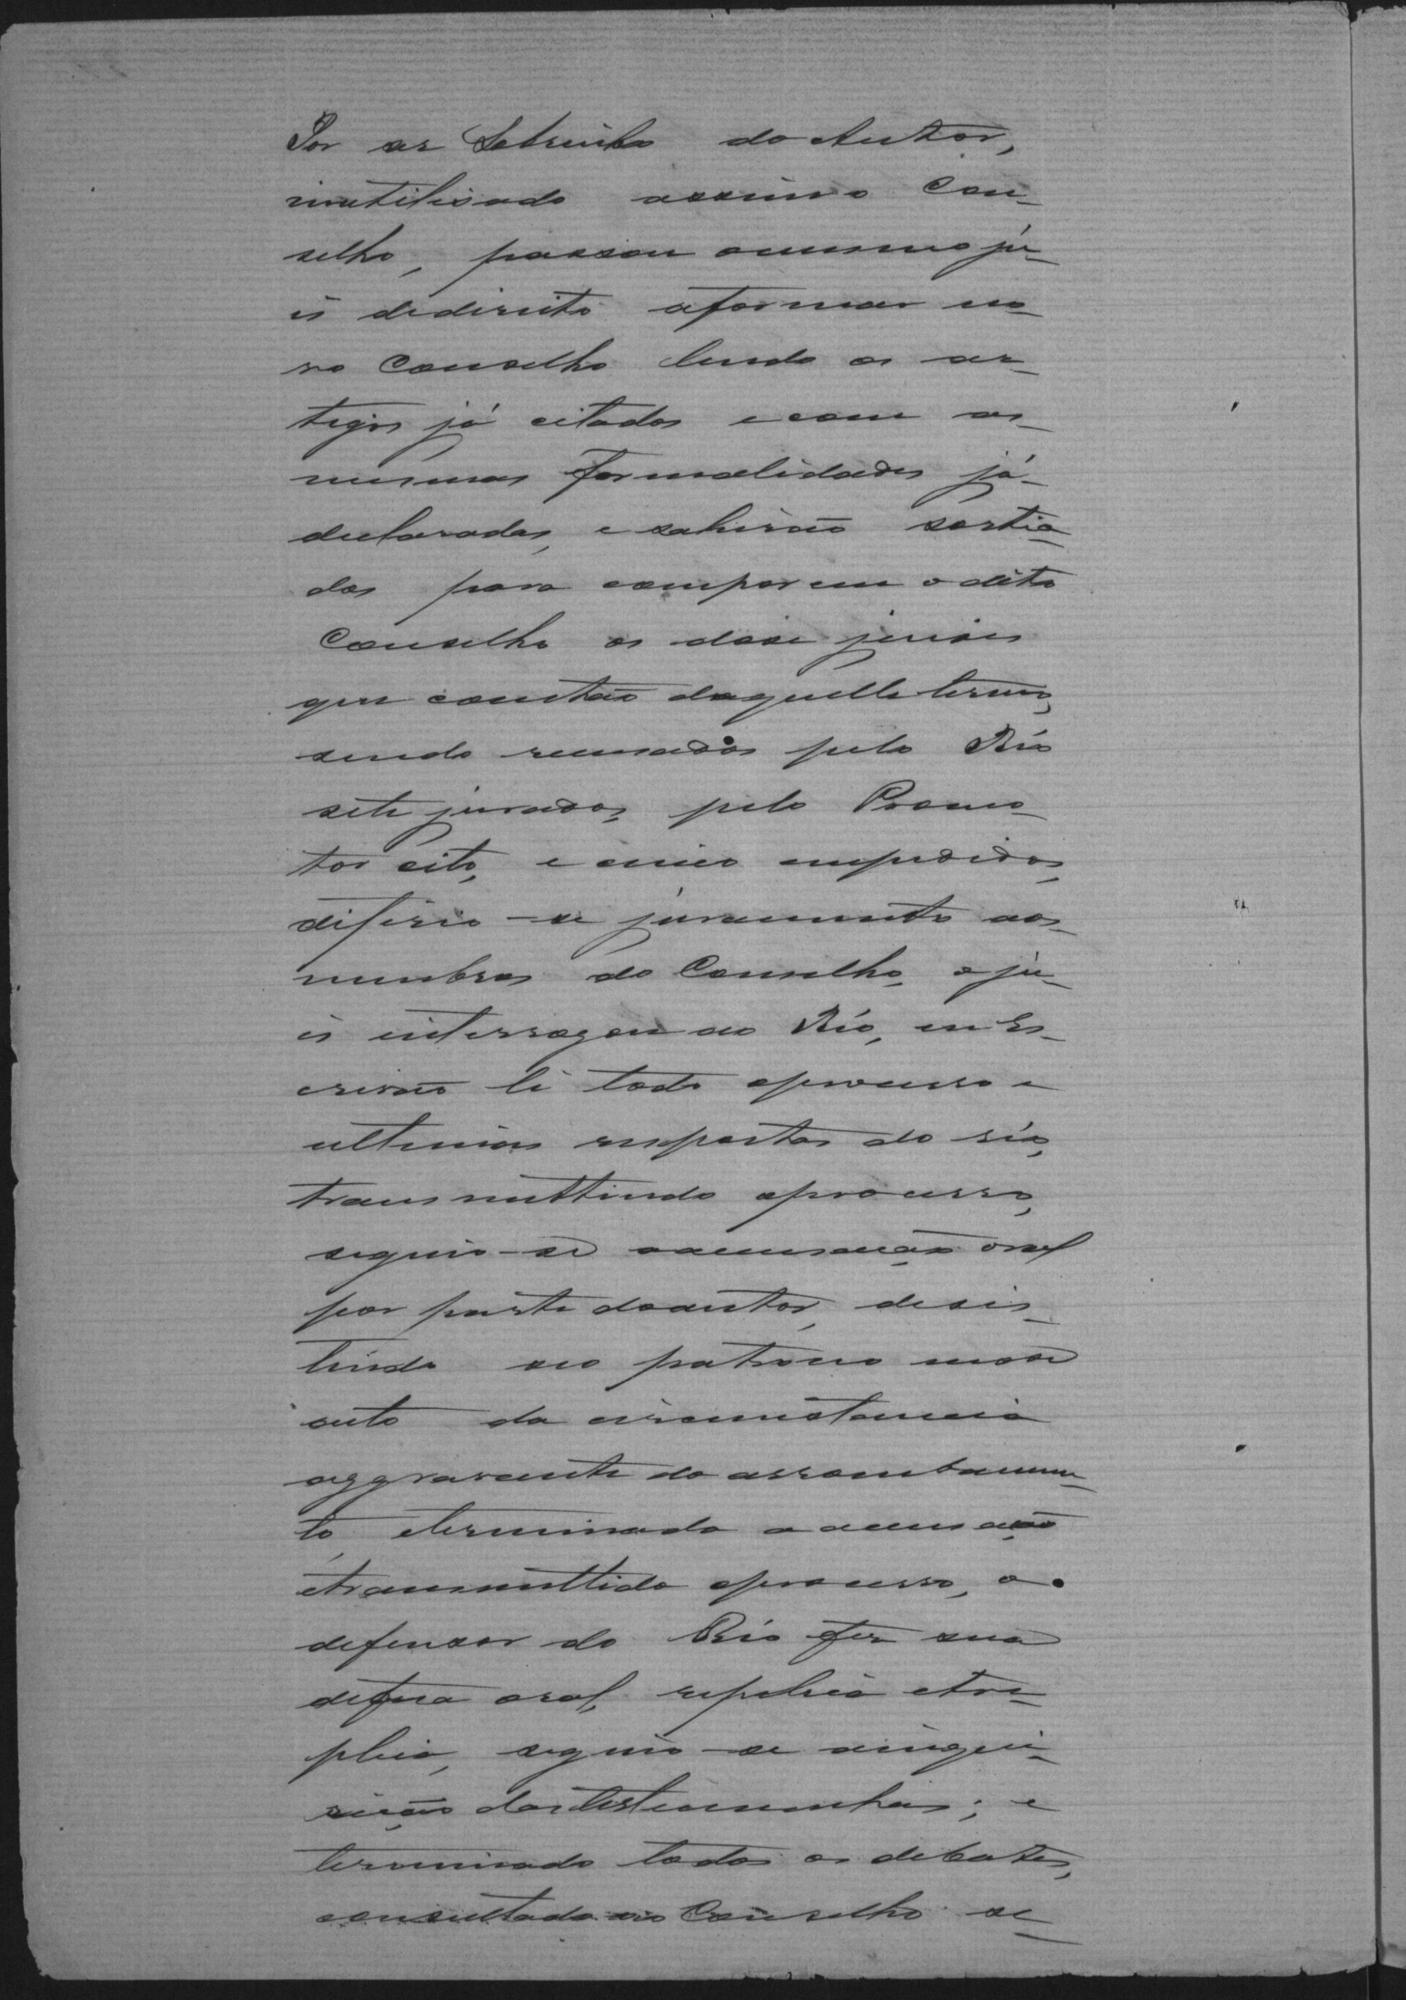 Por ser Sobrinho do Autor,
inutilisado assim o Con-
selho, passou o mesmo ju-
is de direito a formar no-
vo Conselho lendo os ar-
tigos já citados e com as
mesmas formalidades já
declaradas, e sahirão sortia-
dos para comporem o dito
Conselho os dose juises
que constão daquelle termo,
sendo recusados pelo Réo
sete jurados, pelo Promo-
tor oito, e cinco impedidos,
diferio-se juramento aos
membros do Conselho, o ju-
is interrogou ao Réo, eu Es-
crivão li todo o processo e
ultimas respostas do réo,
transmittindo o processo,
seguio-se a accusação oral
por parte do autor, desis-
tindo seo patrono
da circumstancia
aggravante do arrombamen-
to, e terminada a accusação
e transmittido o processo, o
defensor do Réo fez sua
defesa oral, replica e tre-
plica, seguio-se a inqui-
rição das testemunhas; e
terminado todos os debates,
consultado ao Conselho se